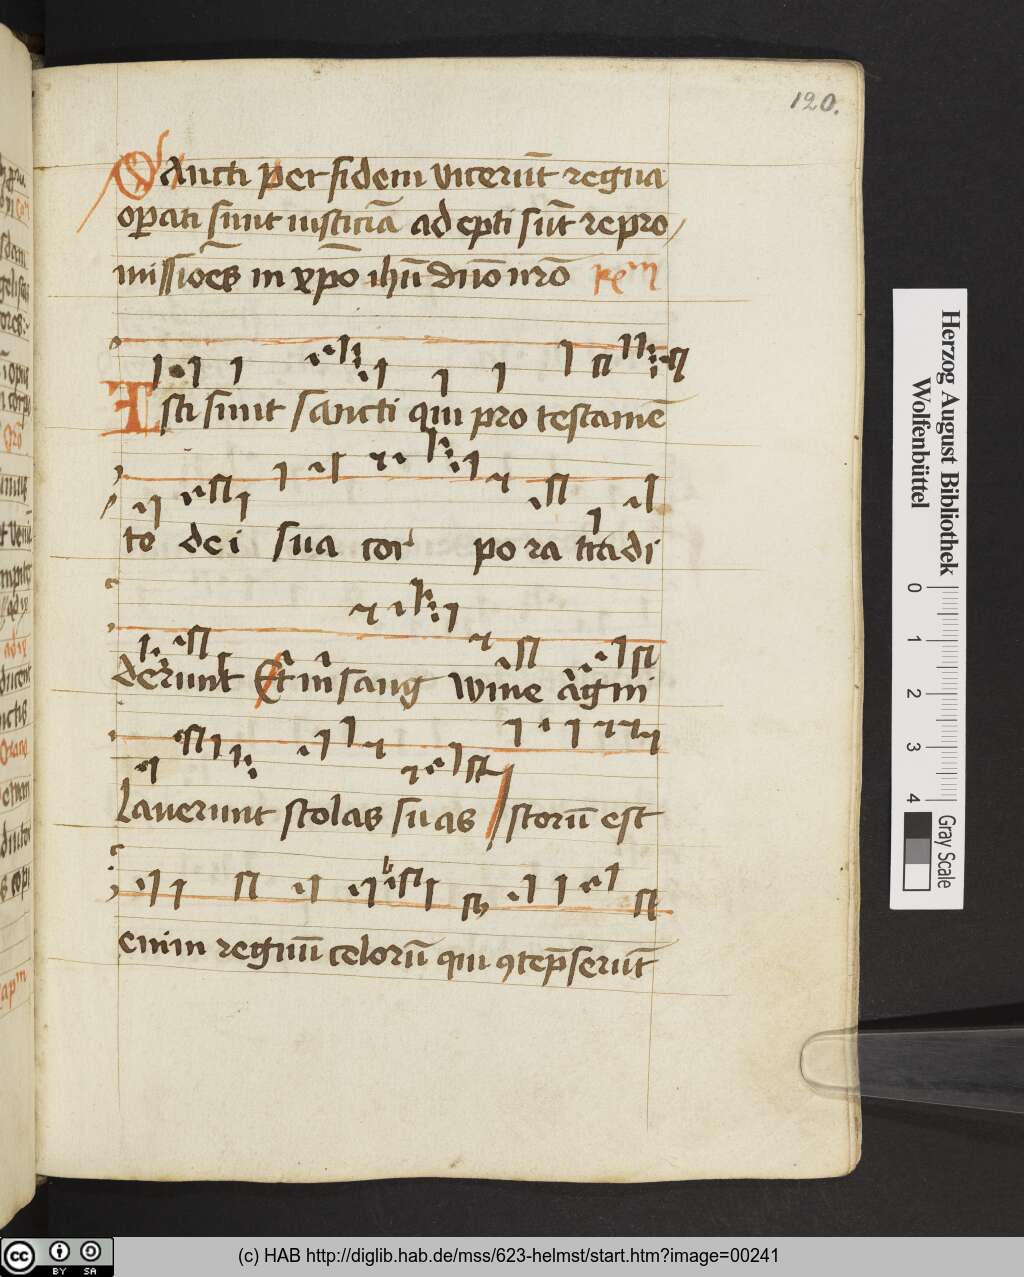 120.
Sancti per fidem vicerūt regna
operati sunt iusticiā adepti sūt repro
missiōes in xp̄o ihū dn̄o nr̄o
Isti sunt sancti qui pro testamē
te dei sua cor po ra tradi
derunt Et in sang wine agni
Laverunt stolas suas Istorū est
enim regnū celorū qui ꝯtēpserūt
Herzog August Bibliothek
Wolfenbüttel
0 1 2 3 4
Gray Scale
cc BY SA
(c) HAB http://diglib.hab.de/mss/623-helmst/start.htm?image=00241